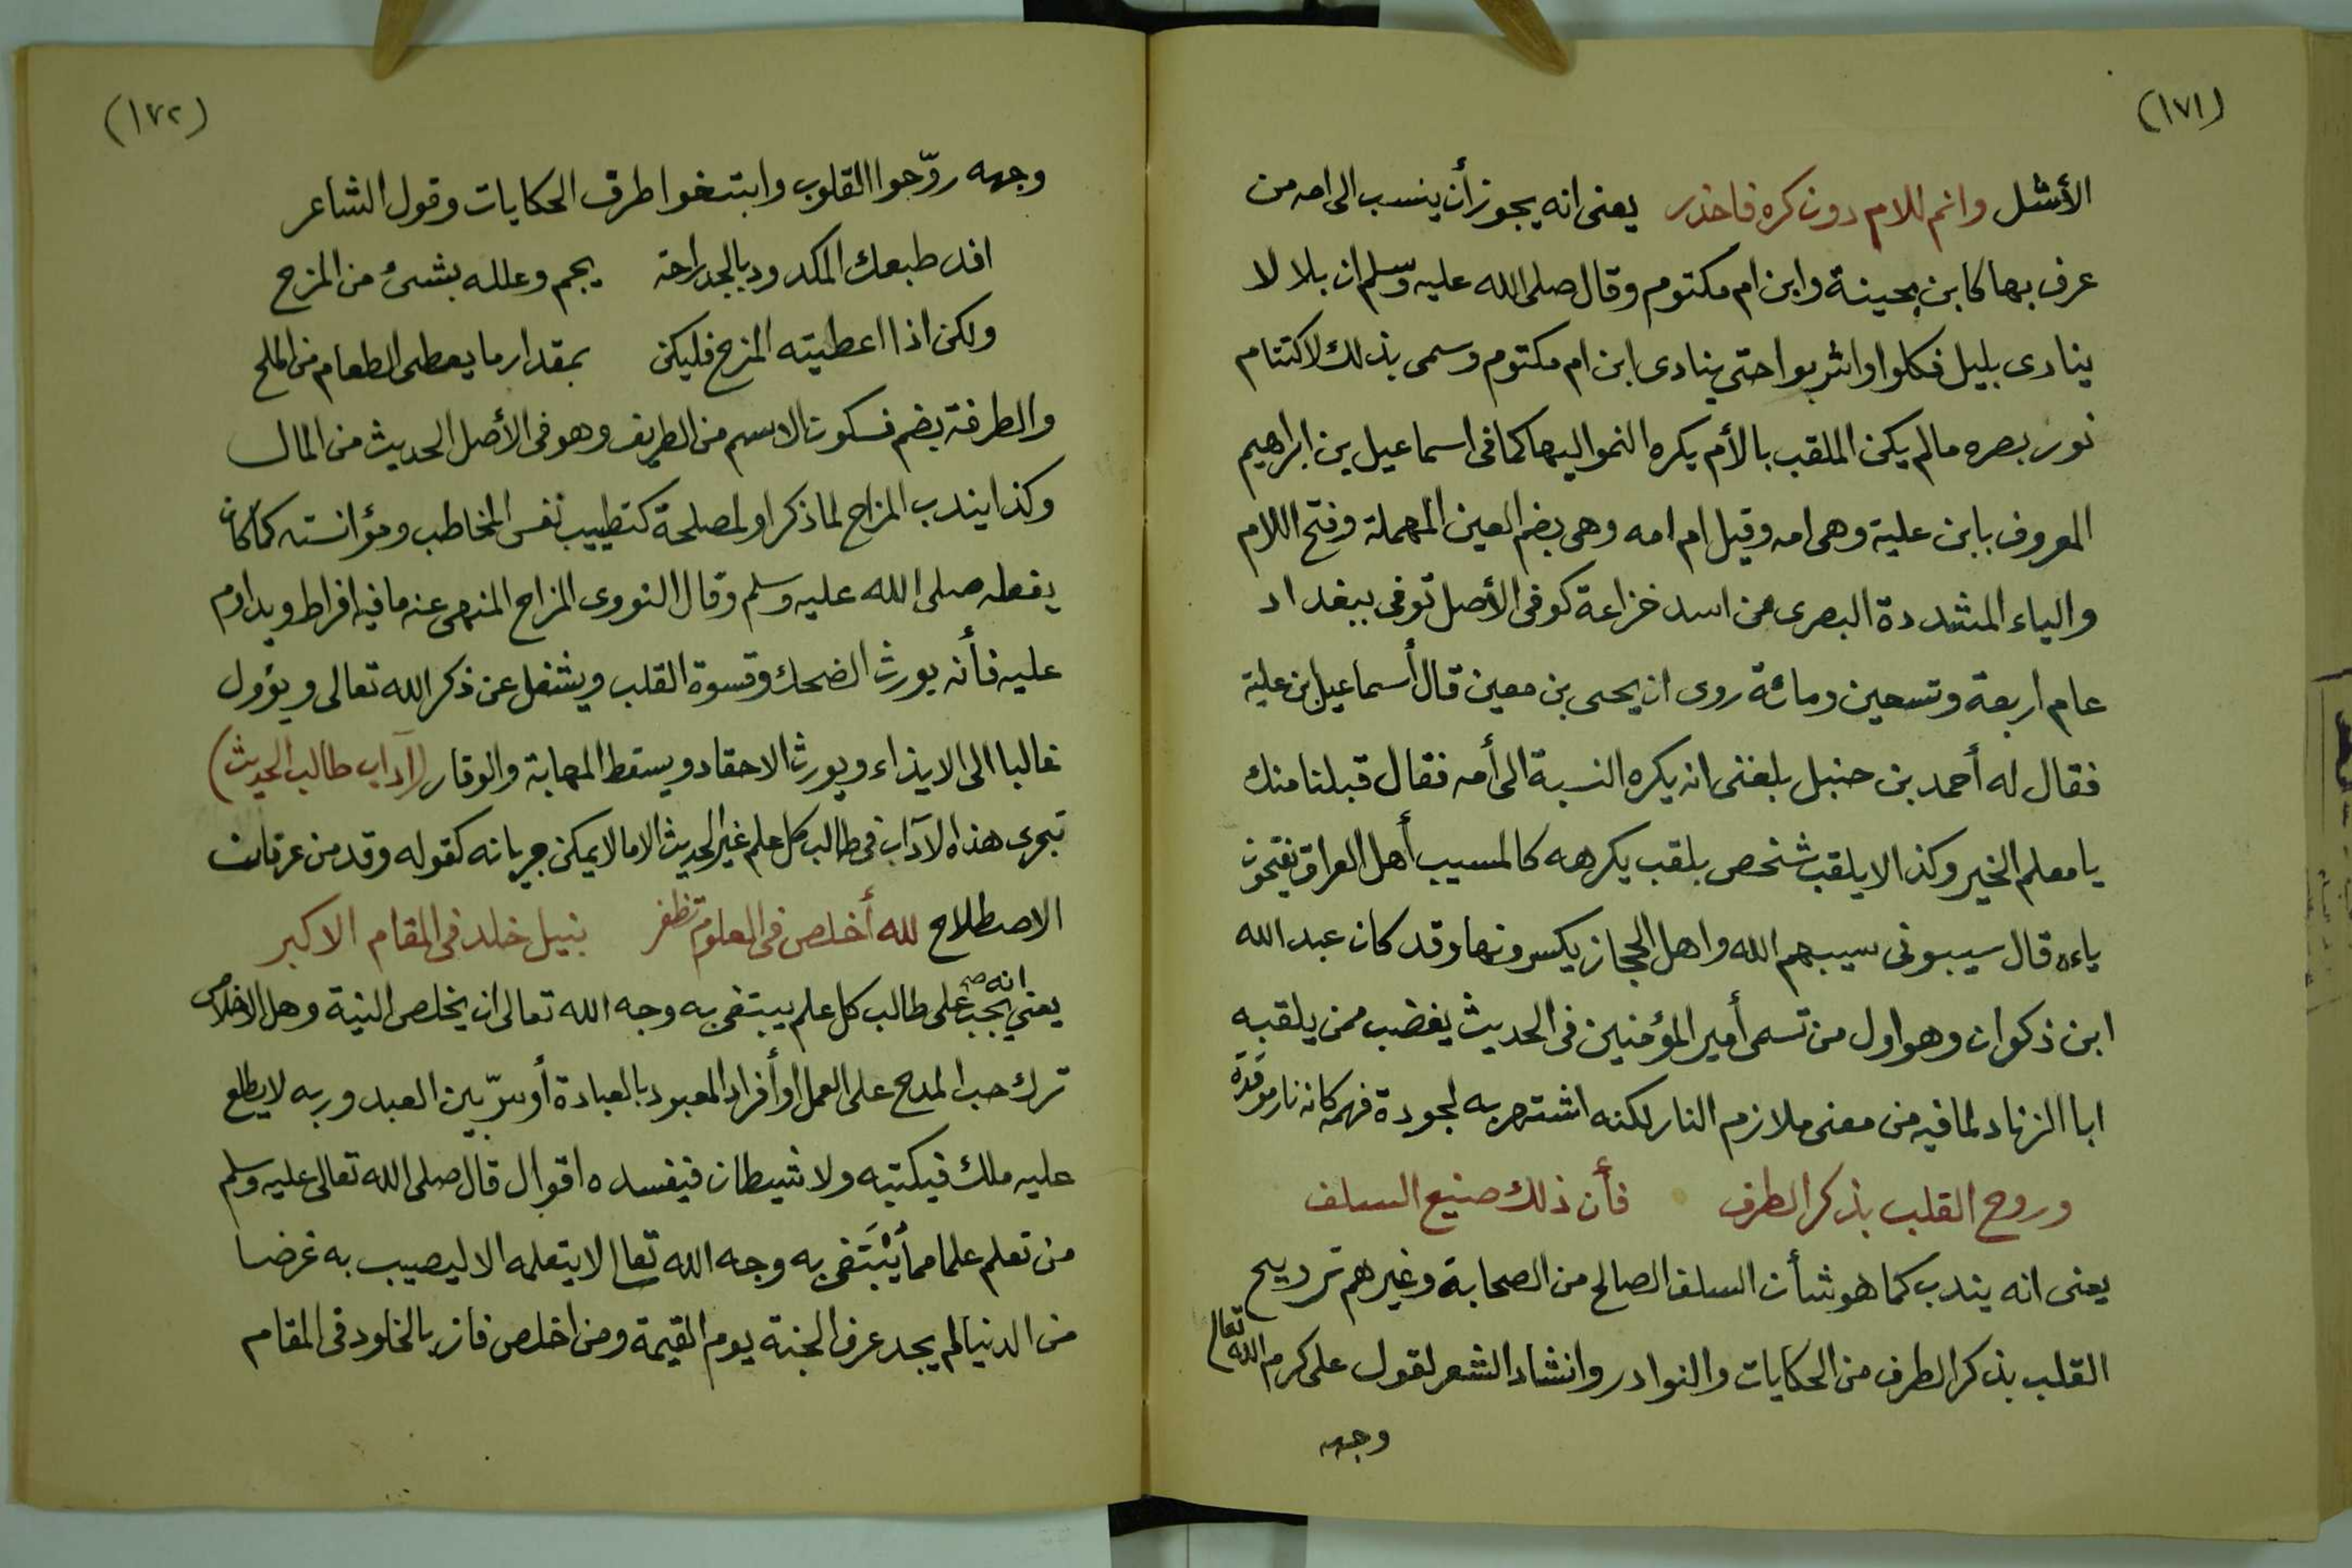 (١٧١)
الأشل وانم للام دون كره فاحذر يعنى انه يجوز أن ينسب الى امه من
عرف بها كابن بحينة وابن ام مكتوم وقال صلى الله عليه وسلم ان بلالا لا
ينادى بليل فكلوا واشربوا حتى ينادى ابن ام مكتوم وسمى بذلك لاكتتام
نور بصره مالم يكن الملقب بالأم يكره النمو اليها كما فى اسماعيل بن ابراهيم
المعروف بابن علية وهى امه وقيل ام امه وهى بضم العين المهملة وفتح اللام
والياء المشددة البصرى من اسد خزاعة كوفى الأصل توفى ببغداد
عام اربعة وتسعين ومائة روى ان يحيى بن معين قال أسماعيل بن علية
فقال له أحمد بن حنبل بلغنى انه يكره النسبة الى أمه فقال قبلنا منك
يا معلم الخير وكذا لا يلقب شخص بلقب يكرهه كالمسيب أهل العراق يفتحون
ياءه قال سيبونى سيبهم الله واهل الحجاز يكسرونها وقد كان عبد الله
ابن ذكوان وهو اول من تسمى أمير المؤمنين فى الحديث يغضب ممن يلقبه
ابا الزناد لما فيه من معنى ملازم النار لكنه اشتهر به لجودة فهمه كانه نار موقدة
وروح القلب بذكر الطرف فأن ذلك صنيع السلف
يعنى انه يندب كما هو شأن السلف الصالح من الصحابة وغيرهم ترويح
القلب بذكر الطرف من الحكايات والنوادر وانشاد الشعر لقول على كرم الله تعالى
وجهه
(١٧٢)
وجهه روّحوا القلوب وابتغوا طرق الحكايات وقول الشاعر
افد طبعك المكدود بالجد راحة يجم وعلله بشىء من المزح
ولكن اذا اعطيته المزح فليكن بمقدار ما يعطى الطعام من الملح
والطرفة بضم فسكون الاسم من الطريف وهو فى الأصل الحديث من المال
وكذا يندب المزاح لما ذكر او لمصلحة كتطييب نفس المخاطب ومؤانسته كما كان
يفعله صلى الله عليه وسلم وقال النووى المزاح المنهى عنه ما فيه افراط ويداوم
عليه فأنه يورث الضحك وقسوة القلب ويشغل عن ذكر الله تعالى ويؤول
غالبا الى الايذاء ويورث الاحقاد ويسقط المهابة والوقار (آداب طالب الحديث)
تجرى هذه الآداب فى طالب كل علم غير الحديث الا مالا يمكن جريانه كقوله وقد من عرفانت
الاصطلاح لله أخلص فى العلوم تظفر بنيل خلد فى المقام الاكبر
يعنى انه صح يجب على طالب كل علم يبتغى به وجه الله تعالى ان يخلص النية وهل الاخلاص
ترك حب المدح على العمل او أفراد المعبود بالعبادة أو سرّ بين العبد وربه لا يطلع
عليه ملك فيكتبه ولا شيطان فيفسده اقوال قال صلى الله تعالى عليه وسلم
من تعلم علما مما يُبْتَغى به وجه الله تعالى لا يتعلمه الا ليصيب به غرضا
من الدنيا لم يجد عرف الجنة يوم القيمة ومن اخلص فاز بالخلود فى المقام